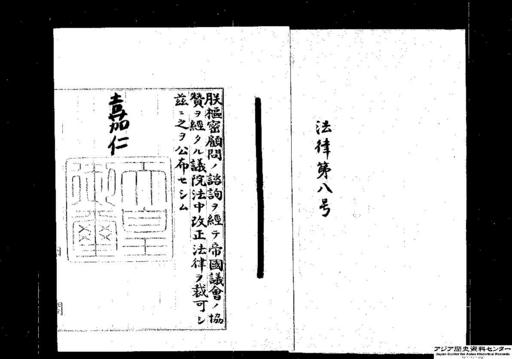 法律第八号
朕樞密顧問ノ諮詢ヲ經テ帝國議會ノ協
贊ヲ經タル議院法中改正法律ヲ裁可シ
茲ニ之ヲ公布セシム
嘉仁
天皇
御璽
アジア歴史資料センター
Japan Center for Asian Historical Records